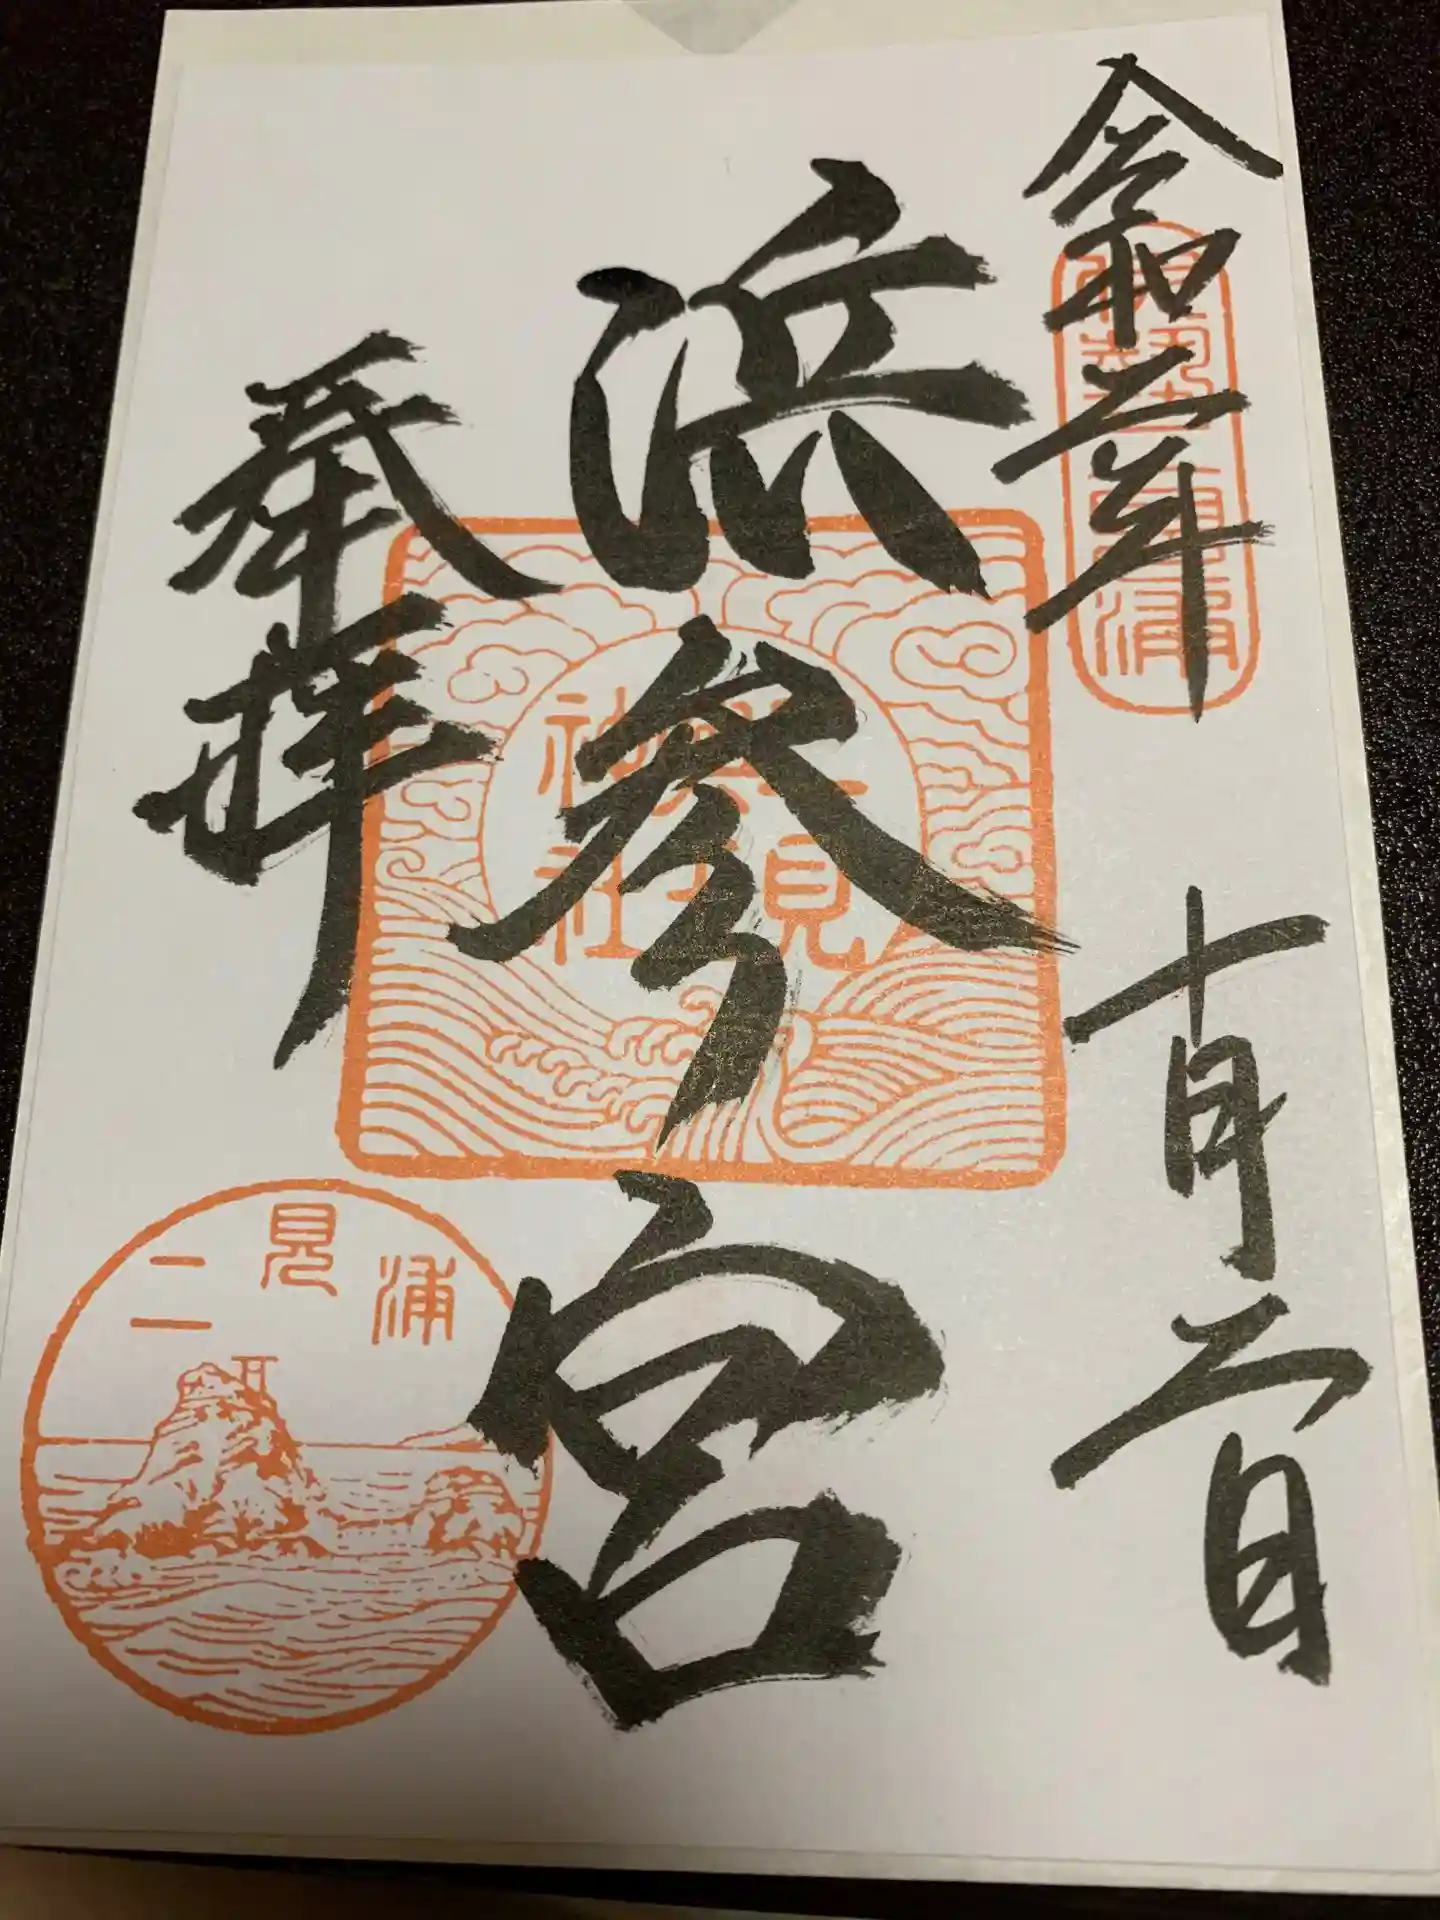 令和二年 十月二日
伊勢二見浦
浜参宮
二見
興玉
神社
奉拝
二見浦